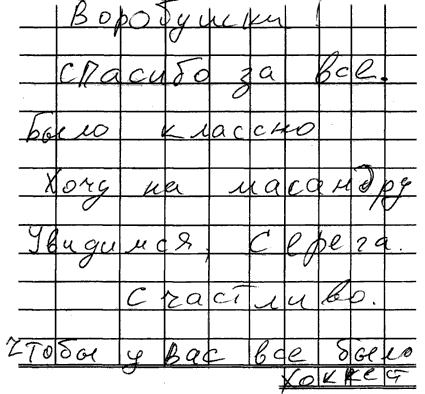 Воробушки!
Спасибо за все.
Было классно
Хочу на масандру
Увидимся, Серега.
Счастливо.
Чтобы у вас все было
хоккет